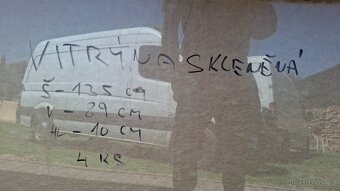 VITRÝNA SKLENĚNÁ
Š - 135 CM
V - 89 CM
HL - 10 CM
4 KS